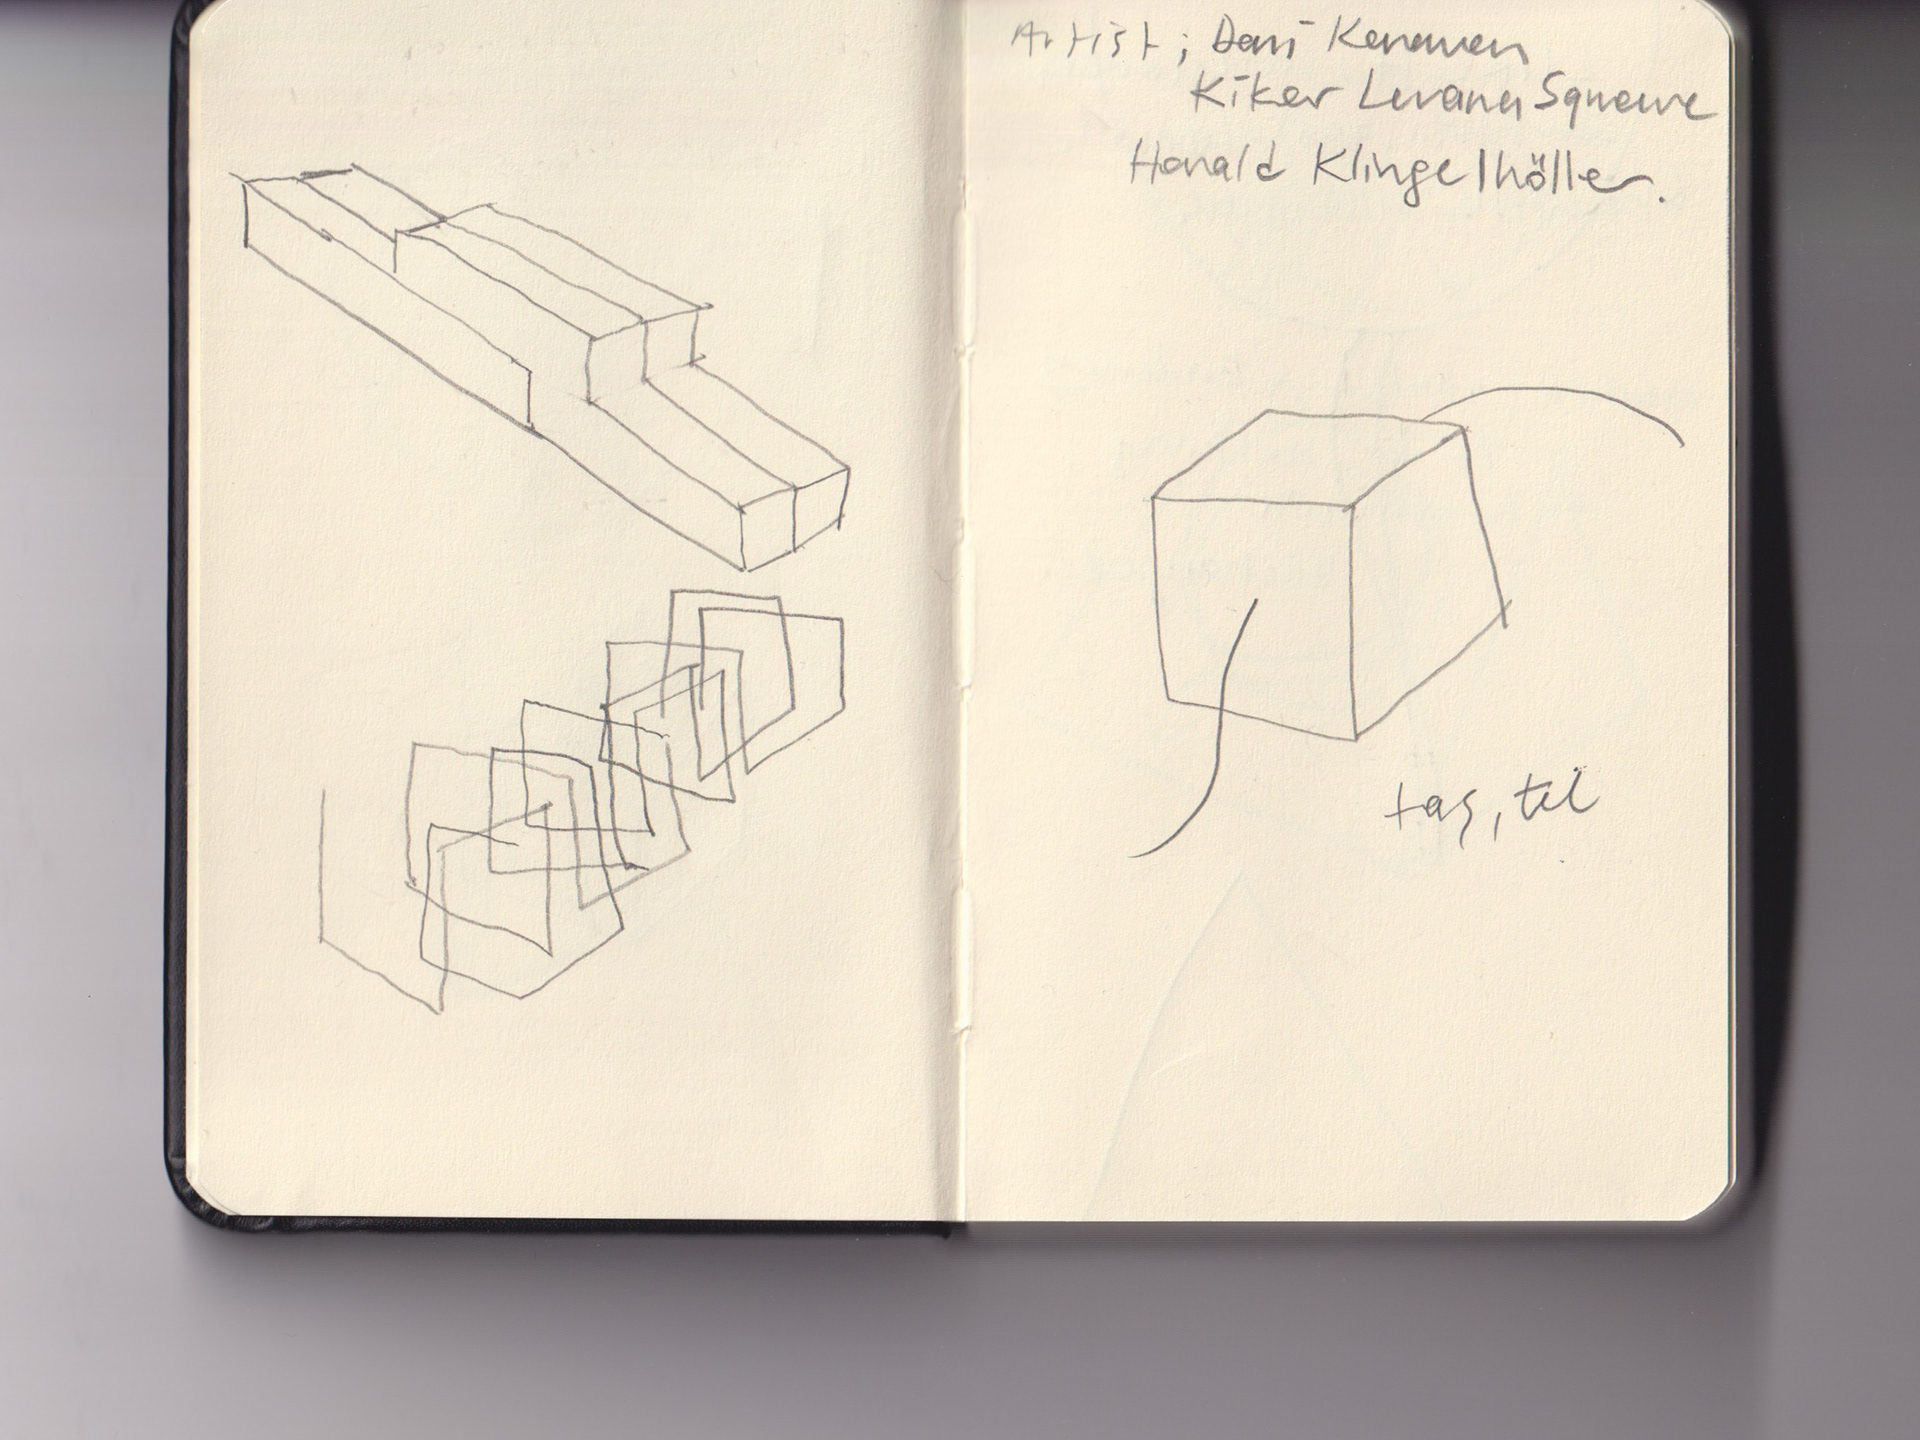 Artist; Dani Keneven
Kiker Levana Square
Harald Klingelhöller.
taş, tel